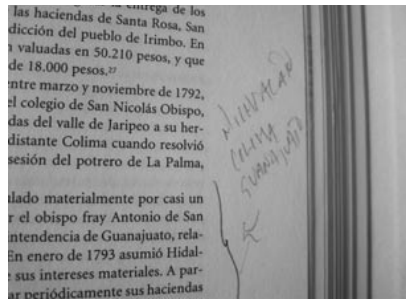 entrega de los
las haciendas de Santa Rosa, San
dicción del pueblo de Irimbo. En
valuadas en 50.210 pesos, y que
de 18.000 pesos.²⁷
entre marzo y noviembre de 1792,
el colegio de San Nicolás Obispo,
das del valle de Jaripeo a su her-
distante Colima cuando resolvió
sesión del potrero de La Palma,
ulado materialmente por casi un
r el obispo fray Antonio de San
intendencia de Guanajuato, rela-
En enero de 1793 asumió Hidal-
sus intereses materiales. A par-
ar periódicamente sus haciendas
MICHOACAN
COLIMA
GUANAJUATO